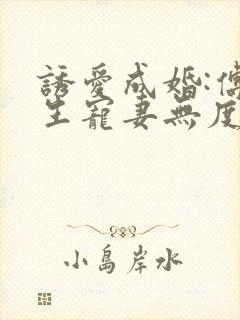 誘愛成婚:傅
生寵妻無度
小島岸水